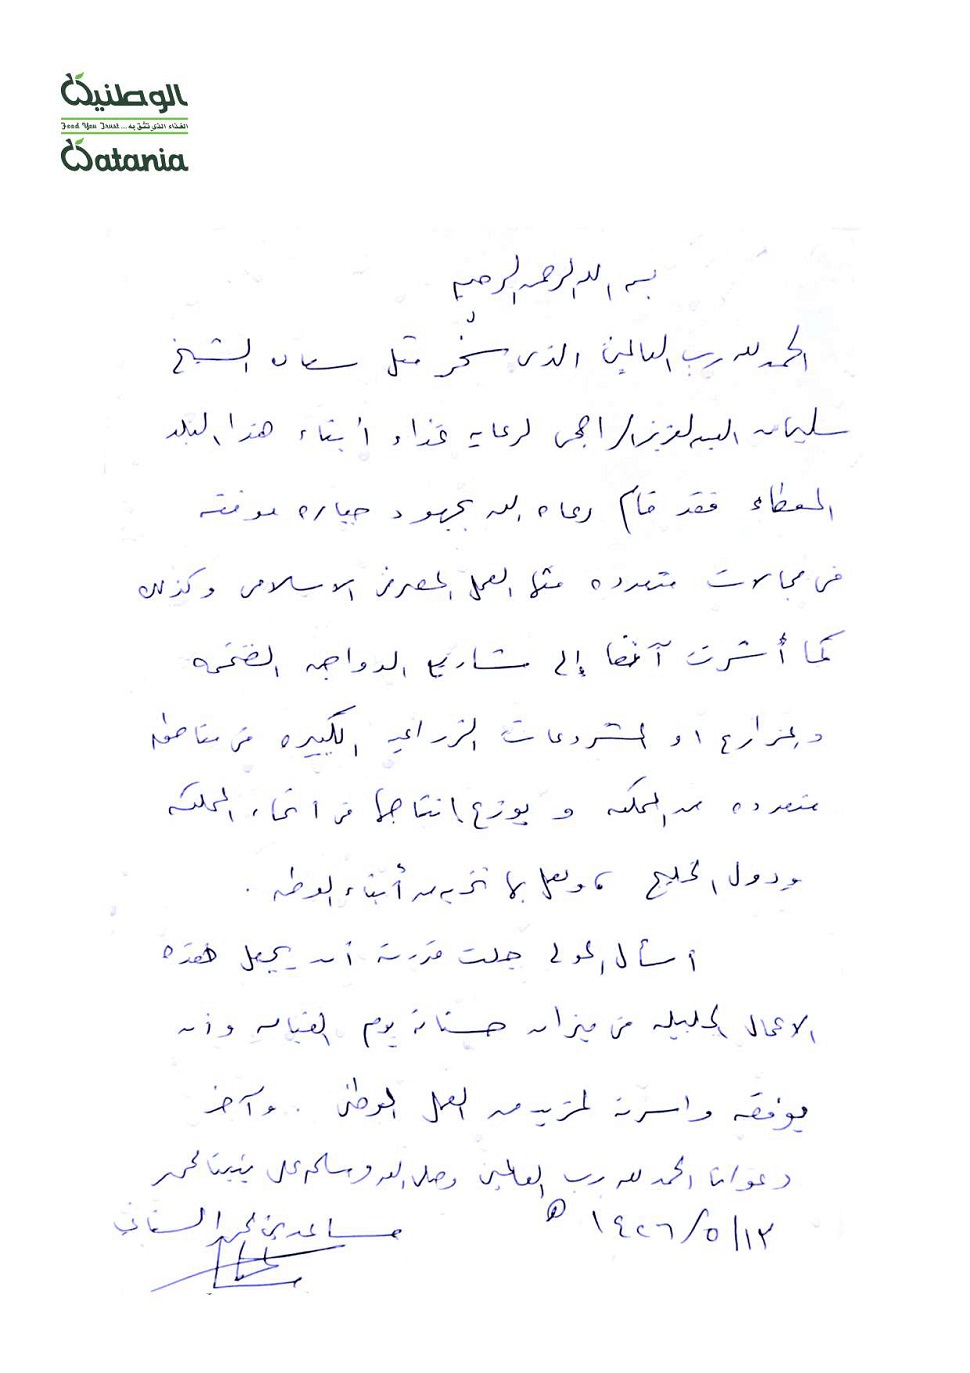 الوطنية
Food You Trust... الغذاء الذي تثق به
Watania
بسم الله الرحمن الرحيم
الحمد لله رب العالمين الذي سخر مثل سعادة الشيخ
سليمان العبدالعزيز الراجحي لرعاية غذاء أبناء هذا البلد
المعطاء فقد قام رعاه الله بجهود جباره موفقه
في مجالات متعدده مثل العمل المصرفي الاسلامي وكذلك
كما أشرت آنفا إلى مشاريع الدواجن الضخمه
والمزارع او المشروعات الزراعيه الكبيره في مناطق
متعدده من المملكه و يوزع انتاجها في انحاء المملكه
ودول الخليج ، ويعمل بها كثير من أبناء الوطن .
اسأل المولى جلت قدرته أن يجعل هذه
الاعمال الجليله في ميزان حسناته يوم القيامه وأن
يوفقه واسرته لمزيد من العمل الوطني . وآخر
دعوانا الحمد لله رب العالمين وصلى الله وسلم على نبينا محمد
١٤٢٦/٥/١٣ هـ
مساعد بن محمد السناني